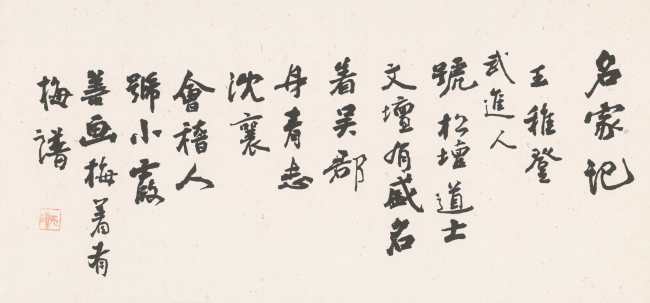 名家记
王稚登
武進人
號松壇道士
文壇有盛名
着吴郡
丹青志
沈襄
會稽人
號小霞
善画梅着有
梅譜